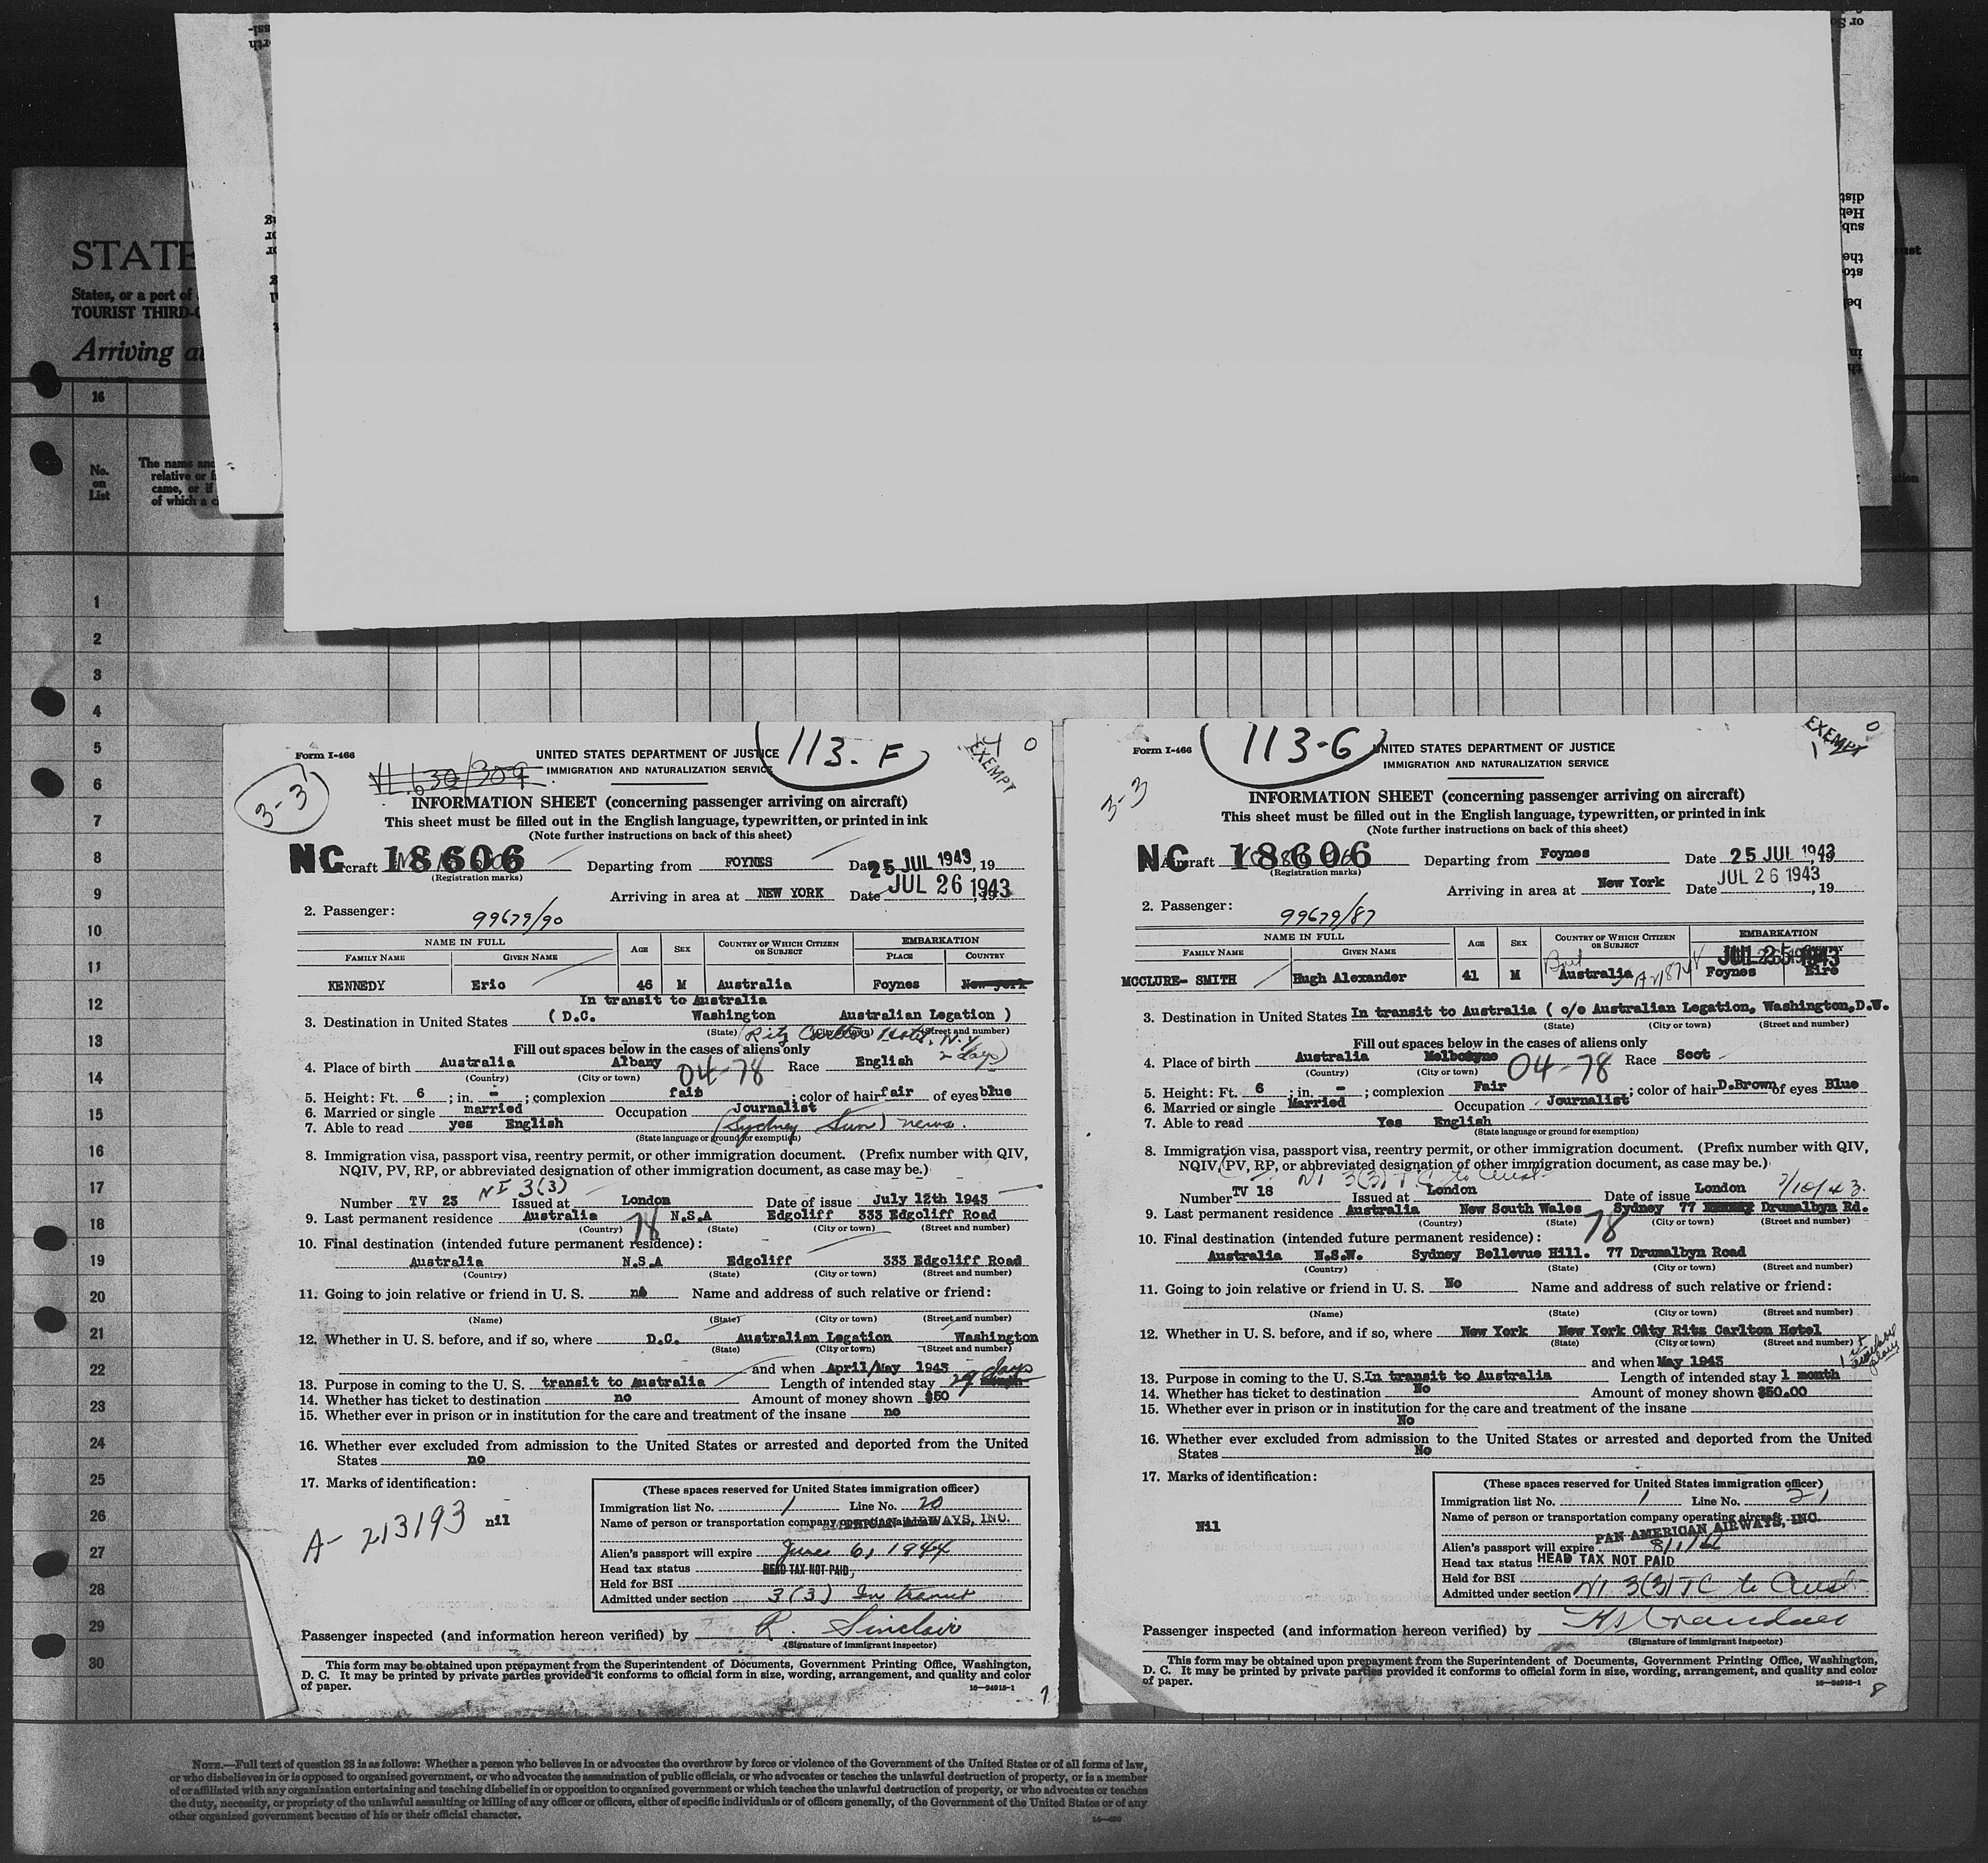 STATE
States, or a port of
TOURIST THIRD-C
Arriving at
16
No.
on
List
The name and
relative or
came, or if
of which a
1
2
3
4
5
6
7
8
9
10
11
12
13
14
15
16
17
18
19
20
21
22
23
24
25
26
27
28
29
30
Form I-466
3-3
113-F
EXEMPT
0
UNITED STATES DEPARTMENT OF JUSTICE
IMMIGRATION AND NATURALIZATION SERVICE
INFORMATION SHEET (concerning passenger arriving on aircraft)
This sheet must be filled out in the English language, typewritten, or printed in ink
(Note further instructions on back of this sheet)
NC 18606 Departing from FOYNES Date 25 JUL 1943, 19
(Registration marks)
Arriving in area at NEW YORK Date JUL 26 1943
2. Passenger: 99679/90
NAME IN FULL AGE SEX COUNTRY OF WHICH CITIZEN OR SUBJECT EMBARKATION
FAMILY NAME GIVEN NAME PLACE COUNTRY
KENNEDY Eric 46 M Australia Foynes New york
In transit to Australia
3. Destination in United States ( D.C. Washington Australian Legation )
(State) (City or town) (Street and number)
Ritz Carlton Hotel, N.Y. 2 days)
Fill out spaces below in the cases of aliens only
4. Place of birth Australia Albany 04-78 Race English
(Country) (City or town)
5. Height: Ft. 6 ; in. - ; complexion fair ; color of hair fair of eyes blue
6. Married or single married Occupation Journalist
7. Able to read yes English (Sydney Sun) news.
(State language or ground for exemption)
8. Immigration visa, passport visa, reentry permit, or other immigration document. (Prefix number with QIV,
NQIV, PV, RP, or abbreviated designation of other immigration document, as case may be.)
NI 3(3)
Number TV 23 Issued at London Date of issue July 12th 1943
9. Last permanent residence Australia 78 N.S.A Edgcliff 333 Edgcliff Road
(Country) (State) (City or town) (Street and number)
10. Final destination (intended future permanent residence):
Australia N.S.A Edgcliff 333 Edgcliff Road
(Country) (State) (City or town) (Street and number)
11. Going to join relative or friend in U. S. no Name and address of such relative or friend:
(Name) (State) (City or town) (Street and number)
12. Whether in U. S. before, and if so, where D.C. Australian Legation Washington
(State) (City or town) (Street and number)
and when April/May 1943
13. Purpose in coming to the U. S. transit to Australia Length of intended stay 29 days
14. Whether has ticket to destination no Amount of money shown $50
15. Whether ever in prison or in institution for the care and treatment of the insane no
16. Whether ever excluded from admission to the United States or arrested and deported from the United
States no
17. Marks of identification:
A-213193 nil
(These spaces reserved for United States immigration officer)
Immigration list No. 1 Line No. 20
Name of person or transportation company operating aircraft
AMERICAN AIRWAYS, INC.
Alien's passport will expire June 6, 1944
Head tax status HEAD TAX NOT PAID
Held for BSI
Admitted under section 3(3) In transit
Passenger inspected (and information hereon verified) by R. Sinclair
(Signature of immigrant inspector)
This form may be obtained upon prepayment from the Superintendent of Documents, Government Printing Office, Washington,
D. C. It may be printed by private parties provided it conforms to official form in size, wording, arrangement, and quality and color
of paper.
16—24915-1
7
Form I-466
3-3
113-G
EXEMPT
0
1
UNITED STATES DEPARTMENT OF JUSTICE
IMMIGRATION AND NATURALIZATION SERVICE
INFORMATION SHEET (concerning passenger arriving on aircraft)
This sheet must be filled out in the English language, typewritten, or printed in ink
(Note further instructions on back of this sheet)
NC Aircraft 18606 Departing from Foynes Date 25 JUL 1943
(Registration marks)
Arriving in area at New York Date JUL 26 1943, 19
2. Passenger: 99679/87
NAME IN FULL AGE SEX COUNTRY OF WHICH CITIZEN OR SUBJECT EMBARKATION
FAMILY NAME GIVEN NAME
JUL 25 1943
MCCLURE- SMITH Hugh Alexander 41 M Australia Foynes Eire
3. Destination in United States In transit to Australia ( c/o Australian Legation, Washington,D.W.
(State) (City or town) (Street and number)
Fill out spaces below in the cases of aliens only
4. Place of birth Australia Melbourne 04-78 Race Scot
(Country) (City or town)
5. Height: Ft. 6 ; in. - ; complexion Fair ; color of hair D.Brown of eyes Blue
6. Married or single Married Occupation Journalist
7. Able to read Yes English
(State language or ground for exemption)
8. Immigration visa, passport visa, reentry permit, or other immigration document. (Prefix number with QIV,
NQIV, PV, RP, or abbreviated designation of other immigration document, as case may be.)
NI 3(3) TC to Aust
Number TV 18 Issued at London Date of issue London 7/10/43.
9. Last permanent residence Australia New South Wales Sydney 77 Drumalbyn Rd.
(Country) (State) 78 (City or town) (Street and number)
10. Final destination (intended future permanent residence):
Australia N.S.W. Sydney Bellevue Hill. 77 Drumalbyn Road
(Country) (State) (City or town) (Street and number)
11. Going to join relative or friend in U. S. No Name and address of such relative or friend:
(Name) (State) (City or town) (Street and number)
12. Whether in U. S. before, and if so, where New York New York City Ritz Carlton Hotel
(State) (City or town) (Street and number)
and when May 1943
13. Purpose in coming to the U. S. In transit to Australia Length of intended stay 1 month
14. Whether has ticket to destination No Amount of money shown $50.00
15. Whether ever in prison or in institution for the care and treatment of the insane
No
16. Whether ever excluded from admission to the United States or arrested and deported from the United
States No
17. Marks of identification:
Nil
(These spaces reserved for United States immigration officer)
Immigration list No. 1 Line No. 21
Name of person or transportation company operating aircraft
PAN AMERICAN AIRWAYS, INC.
Alien's passport will expire
Head tax status HEAD TAX NOT PAID
Held for BSI
Admitted under section NI 3(3) TC to Aust
Passenger inspected (and information hereon verified) by
(Signature of immigrant inspector)
This form may be obtained upon prepayment from the Superintendent of Documents, Government Printing Office, Washington,
D. C. It may be printed by private parties provided it conforms to official form in size, wording, arrangement, and quality and color
of paper.
16—24915-1
8
NOTE.—Full text of question 28 is as follows: Whether a person who believes in or advocates the overthrow by force or violence of the Government of the United States or of all forms of law,
or who disbelieves in or is opposed to organized government, or who advocates the assassination of public officials, or who advocates or teaches the unlawful destruction of property, or is a member
of or affiliated with any organization entertaining and teaching disbelief in or opposition to organized government or which teaches the unlawful destruction of property, or who advocates or teaches
the duty, necessity, or propriety of the unlawful assaulting or killing of any officer or officers, either of specific individuals or of officers generally, of the Government of the United States or of any
other organized government because of his or their official character.